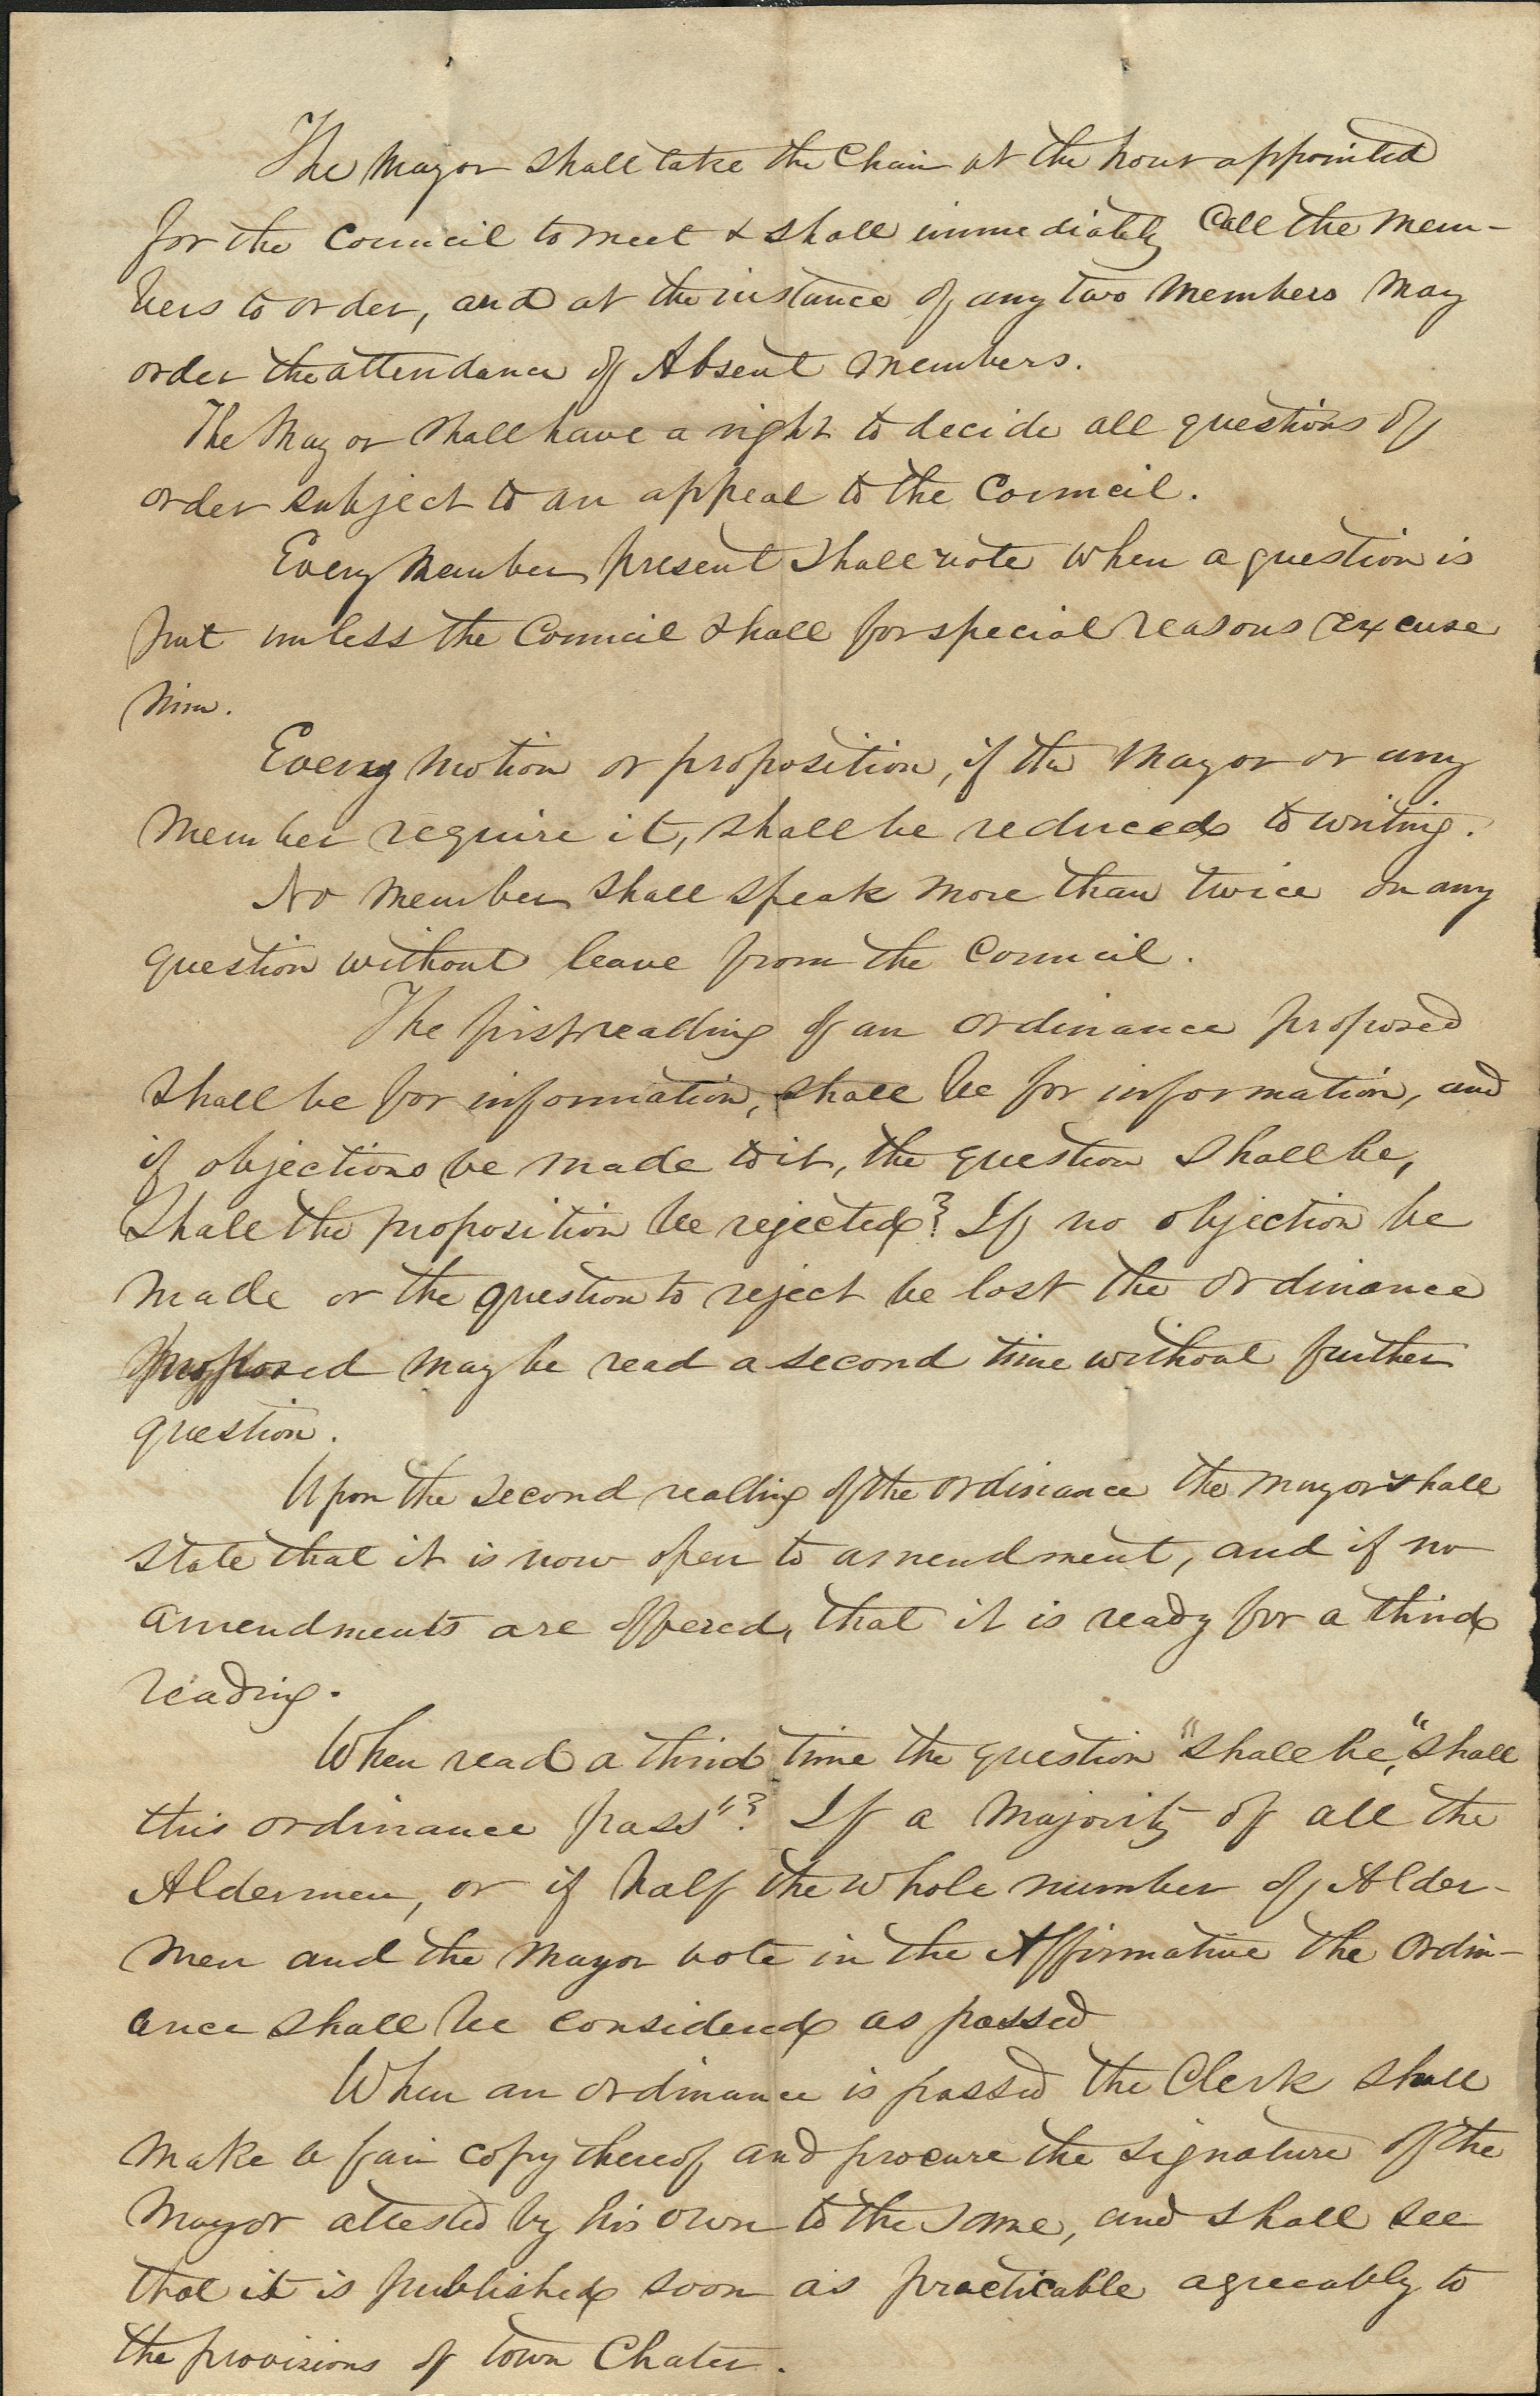 The Mayor shall take the Chair at the hour appointed
for the Council to meet & shall immediately Call the Mem-
bers to order, and at the instance of any two Members May
order the attendance of Absent Members.
The Mayor shall have a right to decide all questions of
order subject to an appeal to the Council.
Every Member present shall vote when a question is
put unless the Council shall for special reasons excuse
him.
Every Motion or proposition, if the Mayor or any
Member require it, shall be reduced to writing.
No Member shall speak More than twice on any
question without leave from the Council.
The first reading of an ordinance proposed
shall be for information, shall be for information, and
if objections be made to it, the question shall be,
Shall the proposition be rejected? If no objection be
Made or the question to reject be lost the ordinance
proposed May be read a second time without further
question.
Upon the second reading of the ordinance the Mayor shall
state that it is now open to amendment, and if no
amendments are offered, that it is ready for a third
reading.
When read a third time the question "shall be, "shall
this ordinance pass"? If a Majority of all the
Aldermen, or if half the whole number of Alder-
men and the Mayor vote in the Affirmative the Ordin-
ance shall be considered as passed
When an ordinance is passed the Clerk shall
Make a fair copy thereof and procure the signature of the
Mayor attested by his own to the same, and shall see
that it is published soon as practicable agreeably to
the provisions of town Chater.